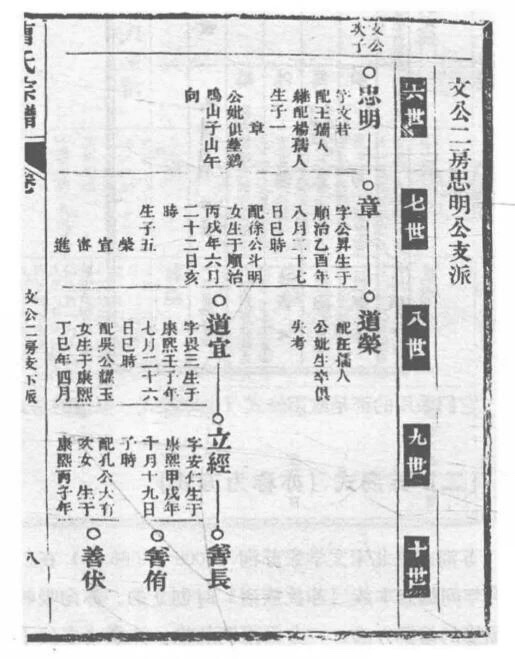 文公二房忠明公支派
六世
七世
八世
九世
十世
文公
次子
○忠明
字文若
配王孺人
繼配楊孺人
生子一
章
公妣俱葬鷄
鳴山子山午
向
○章
字公昇生于
順治乙酉年
八月二十七
日巳時
配徐公斗明
女生于順治
丙戌年六月
二十二日亥
時
生子五
榮
宜
審
進
○道榮
配汪孺人
公妣生卒俱
失考
○道宜
三生于
康熙壬子年
七月二十六
日巳時
配吳公耀玉
女生于康熙
丁巳年四月
○立經
字安仁生于
康熙甲戌年
十月十九日
子時
配孔公大有
次女 生于
康熙丙子年
○善長
○善侑
○善伏
曹氏宗譜
卷
文公二房支下派
八